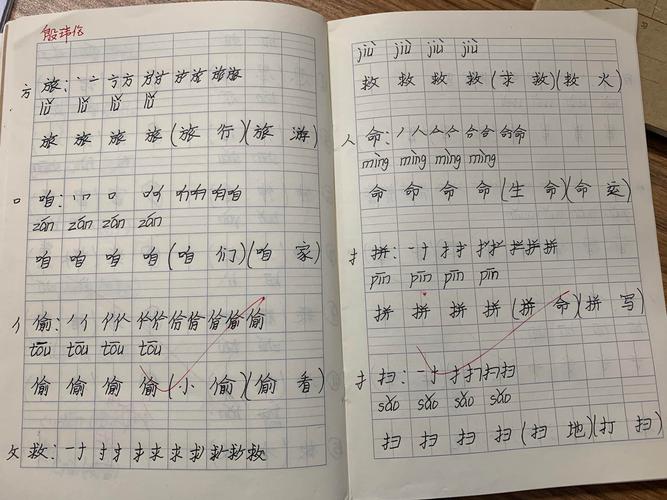 殷玮倍
方 旅:丶亠方方
lǚ lǚ lǚ lǚ
旅 旅 旅 旅(旅 行)(旅 游)
口 咱:
zán zán zán zán
咱 咱 咱 咱(咱 们)(咱 家)
亻 偷:
tōu tōu tōu tōu
偷 偷 偷 偷(小 偷)(偷 看)
攵 救:一十才才求求求救
jiù jiù jiù jiù
救 救 救 救(求 救)(救 火)
人 命:丿人亼合合命命
mìng mìng mìng mìng
命 命 命 命(生 命)(命 运)
扌 拼:一十扌扌拼拼拼
pīn pīn pīn pīn
拼 拼 拼 拼(拼 命)(拼 写)
扌 扫:一十扌扫扫扫
sǎo sǎo sǎo sǎo
扫 扫 扫 扫(扫 地)(打 扫)